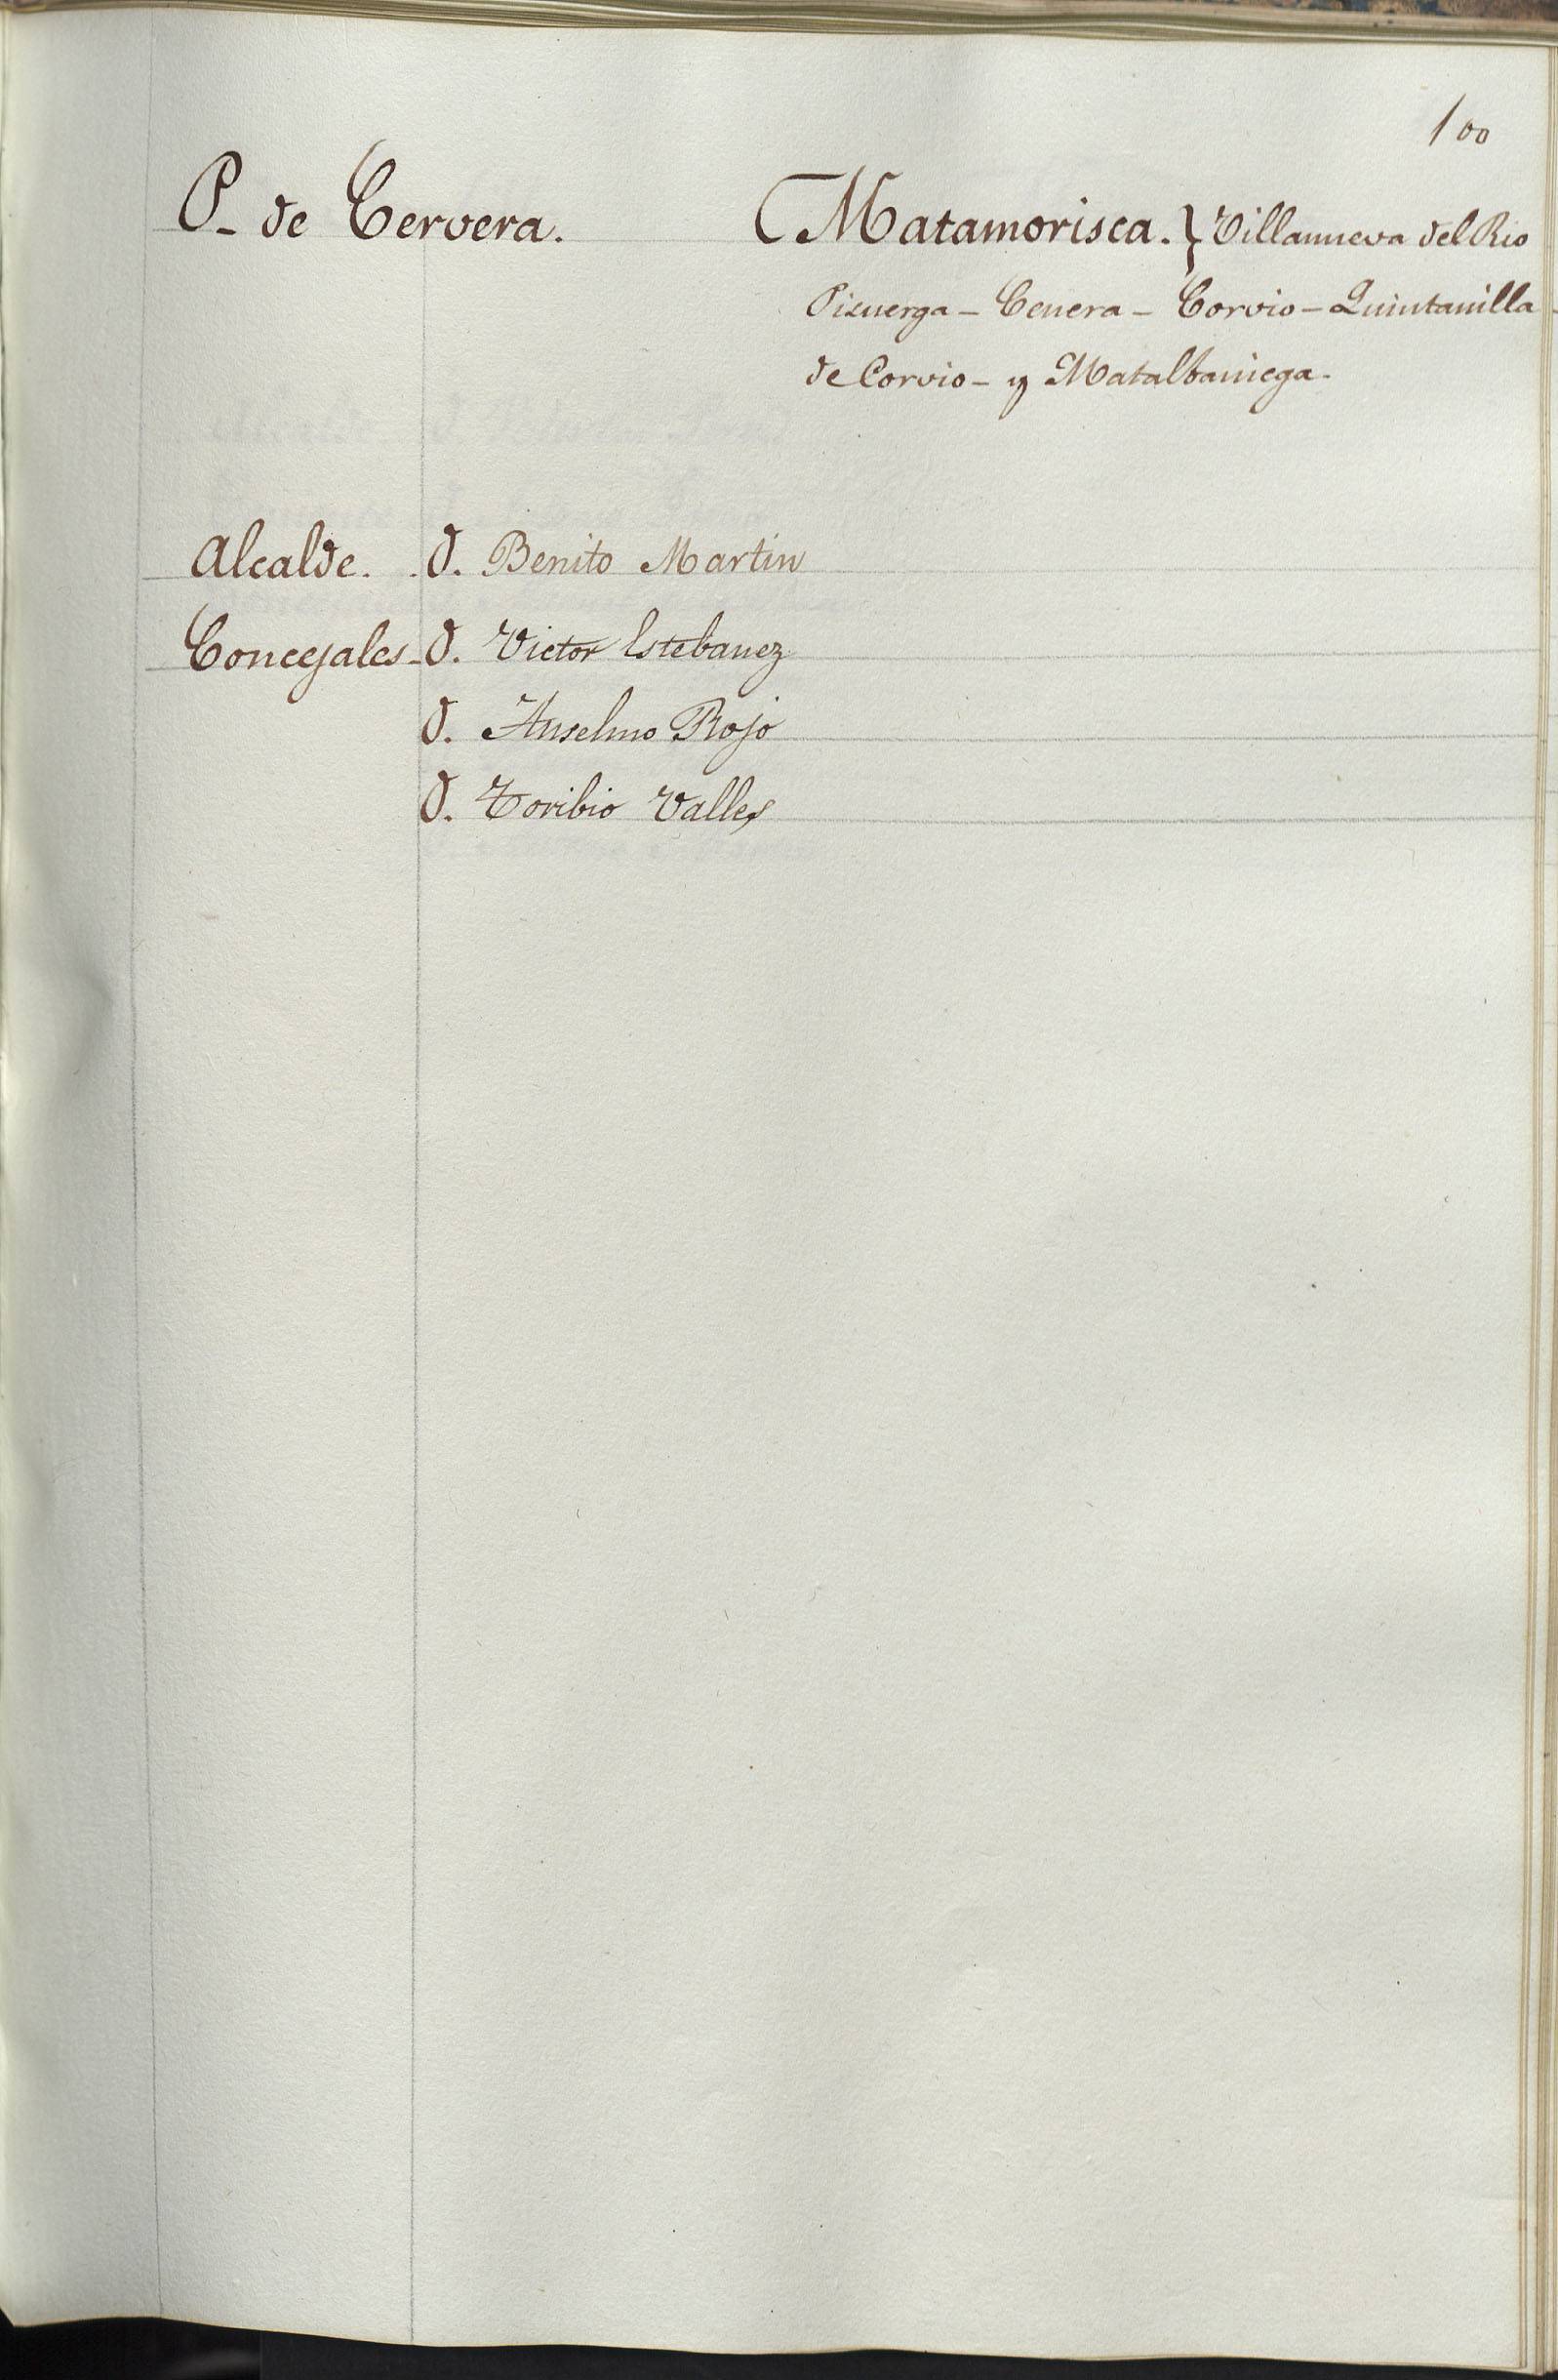 100
P. de Cervera.
Matamorisca. } Villanueva del Rio
Pisuerga - Cenera - Corvio - Quintanilla
de Corvio - y Matalbaniega.
Alcalde. D. Benito Martin
Concejales - D. Victor Estebanez
D. Anselmo Rojo
D. Toribio Valles